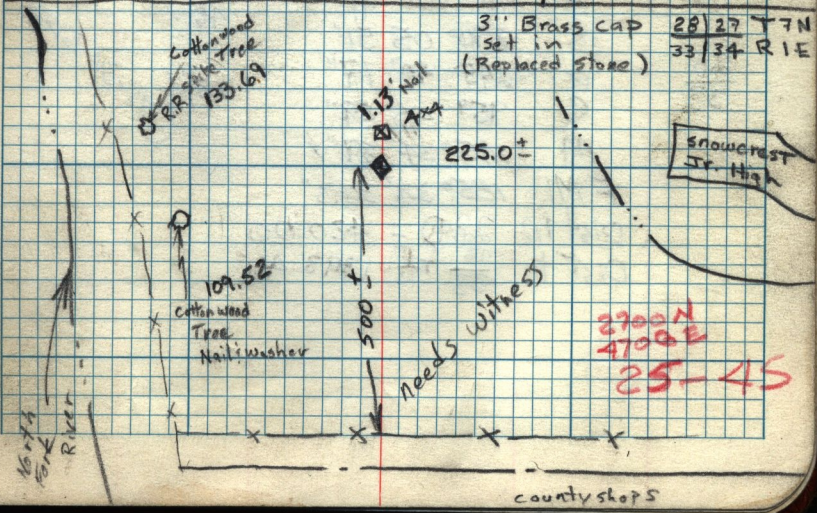 3" Brass Cap
Set in
(Replaced Stone)
28|27 T7N
33|34 R1E
Cottonwood
R.R Spike Tree
133.69
1.13' Nail
4x4
225.0±
Snowcrest
Jr. High
109.52
Cottonwood
Tree
Nail & washer
500±
needs witness
2700 N
4700 E
25-45
North
Fork
River
county shops